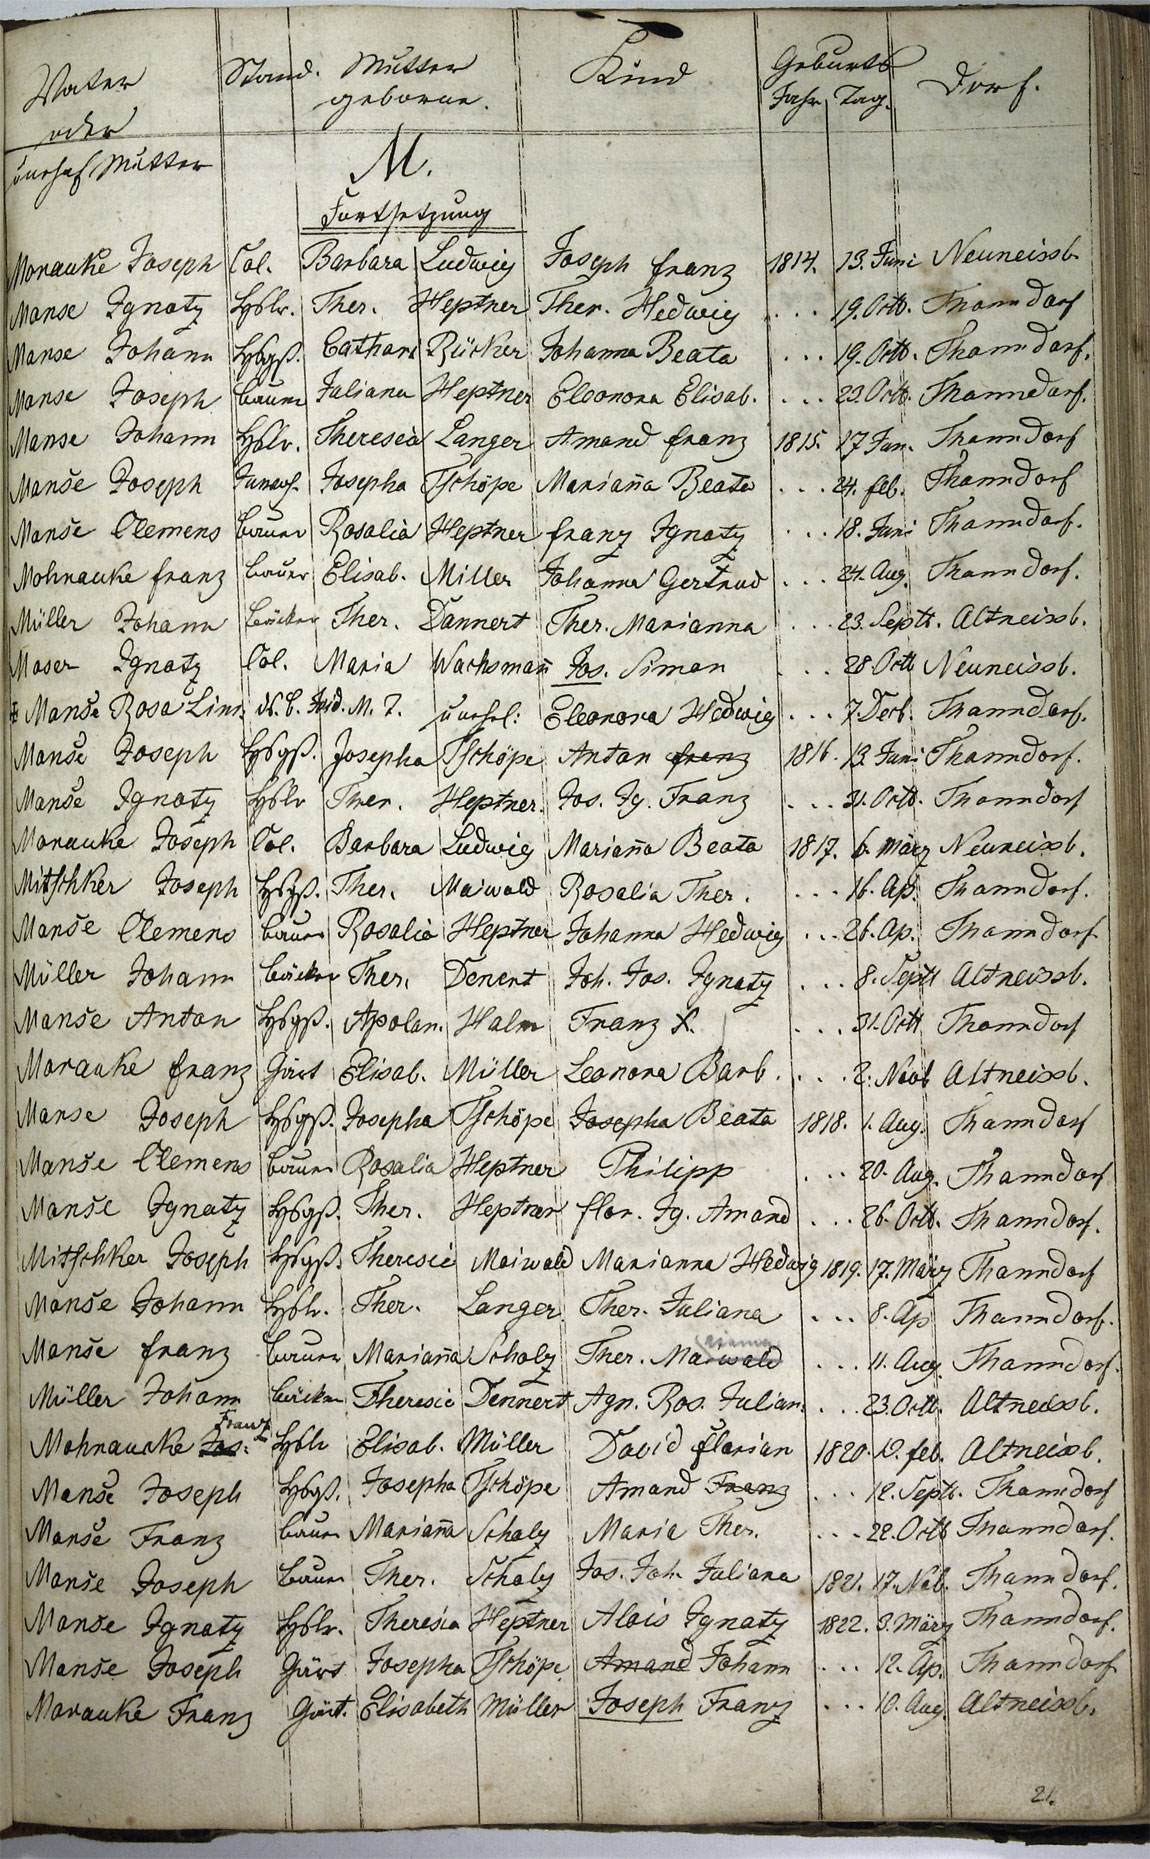 Vater Stand. Mutter Kind Geburts Dorf.
oder geborne. Jahr Tag.
unehel Mutter
M.
Fortsetzung
Morauke Joseph Col. Barbara Ludwig Joseph Franz 1814. 13. Juni Neuneissb.
Manse Ignatz Hslr. Ther. Heptner Ther. Hedwig ... 19. Octb. Thanndorf
Manse Johann Hsgß. Cathari Rücker Johanna Beata ... 19. Octb. Thanndorf.
Manse Joseph bauer Juliana Heptner Eleonora Elisab. ... 23. Octb. Thanndorf.
Manse Johann Hslr. Theresia Langer Amand Franz 1815. 17 Jan. Thanndorf
Manse Joseph Inwoh. Josepha Tschöpe Mariaña Beata ... 24. Feb. Thanndorf
Manse Clemens bauer Rosalia Heptner Franz Ignatz ... 18. Juni Thanndorf.
Mohnauke Franz bauer Elisab. Miller Johanna Gertrud ... 24. Aug. Thanndorf.
Müller Johann bäcker Ther. Dannert Ther. Marianna ... 23. Septb. Altneissb.
Moser Ignatz Col. Maria Wachsmañ Jos. Simon ... 28 Octb Neuneissb.
Manse Rosa Linn. M. T. unehel: Eleonora Hedwig ... 7. Decb. Thanndorf.
Manse Joseph Hsgß. Josepha Tschöpe Anton Franz 1816. 13. Juni Thanndorf.
Manse Ignatz Hslr Ther. Heptner. Jos. Ig. Franz ... 31. Octb. Thanndorf
Morauke Joseph Col. Barbara Ludwig Mariaña Beata 1817. 6. März Neuneissb.
Mitschker Joseph Hsgß. Ther. Maiwald Rosalia Ther. ... 16. Ap. Thanndorf.
Manse Clemens bauer Rosalia Heptner Johanna Hedwig ... 26. Ap. Thanndorf
Müller Johann bäcker Ther. Denert Joh. Jos. Ignatz ... 8. Septb Altneissb.
Manse Anton Hsgß. Apolon. Halm Franz X. ... 31. Octb Thanndorf
Morauke Franz Gärt Elisab. Müller Leonora Barb. ... 2. Novb Altneissb.
Manse Joseph Hsgß. Josepha Tschöpe Josepha Beata 1818. 1. Aug. Thanndorf
Manse Clemens bauer Rosalia Heptner Philipp ... 20. Aug. Thanndorf
Manse Ignatz Hsgß. Ther. Heptner Flor. Ig. Amand ... 26. Octb. Thanndorf.
Mitschker Joseph Hsgß. Theresie Maiwald Marianna Hedwig 1819. 17. März Thanndorf
Manse Johann Hslr. Ther. Langer Ther. Juliana ... 8. Ap Thanndorf.
Manse Franz bauer Mariaña Scholz Ther. Maiwald ... 11. Aug. Thanndorf.
Müller Johann bäcker Theresie Dennert Agn. Ros. Julian. ... 23. Octb. Altneissb.
Franz
Mohnaucke Jos. Hslr Elisab. Müller David Florian 1820. 12. Feb. Altneissb.
Manse Joseph Hsgß. Josepha Tschöpe Amand Franz ... 12. Septb. Thanndorf
Manse Franz bauer Mariaña Scholz Maria Ther. ... 22. Octb Thanndorf.
Manse Joseph bauer Ther. Scholz Jos. Joh. Juliana 1821. 17. Nob. Thanndorf.
Manse Ignatz Hslr. Theresia Heptner Alois Ignatz 1822. 3. März Thanndorf.
Manse Joseph Gärt Josepha Tschöpe Amand Johann ... 12. Ap. Thanndorf
Morauke Franz Gärt. Elisabeth Müller Joseph Franz ... 10. Aug Altneissb.
21.